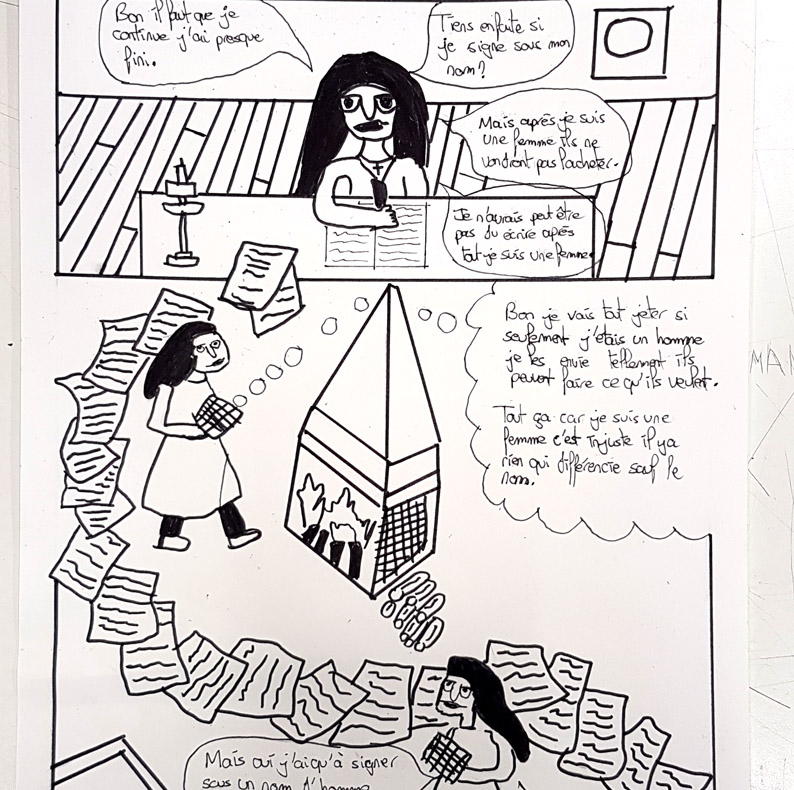 Bon il faut que je
continue j'ai presque
fini.
Tiens enfaite si
je signe sous mon
nom?
Mais après je suis
une femme ils ne
vondront pas l'acheter.
Je n'aurais peut être
pas du écrire après
tout je suis une femme.
Bon je vais tout jeter si
seulement j'étais un homme
je les envie tellement ils
peuvent faire ce qu'ils veulent.
Tout ça car je suis une
femme c'est injuste il y a
rien qui différencie sauf le
nom.
MAN
Mais oui j'ai qu'à signer
sous un nom d'homme